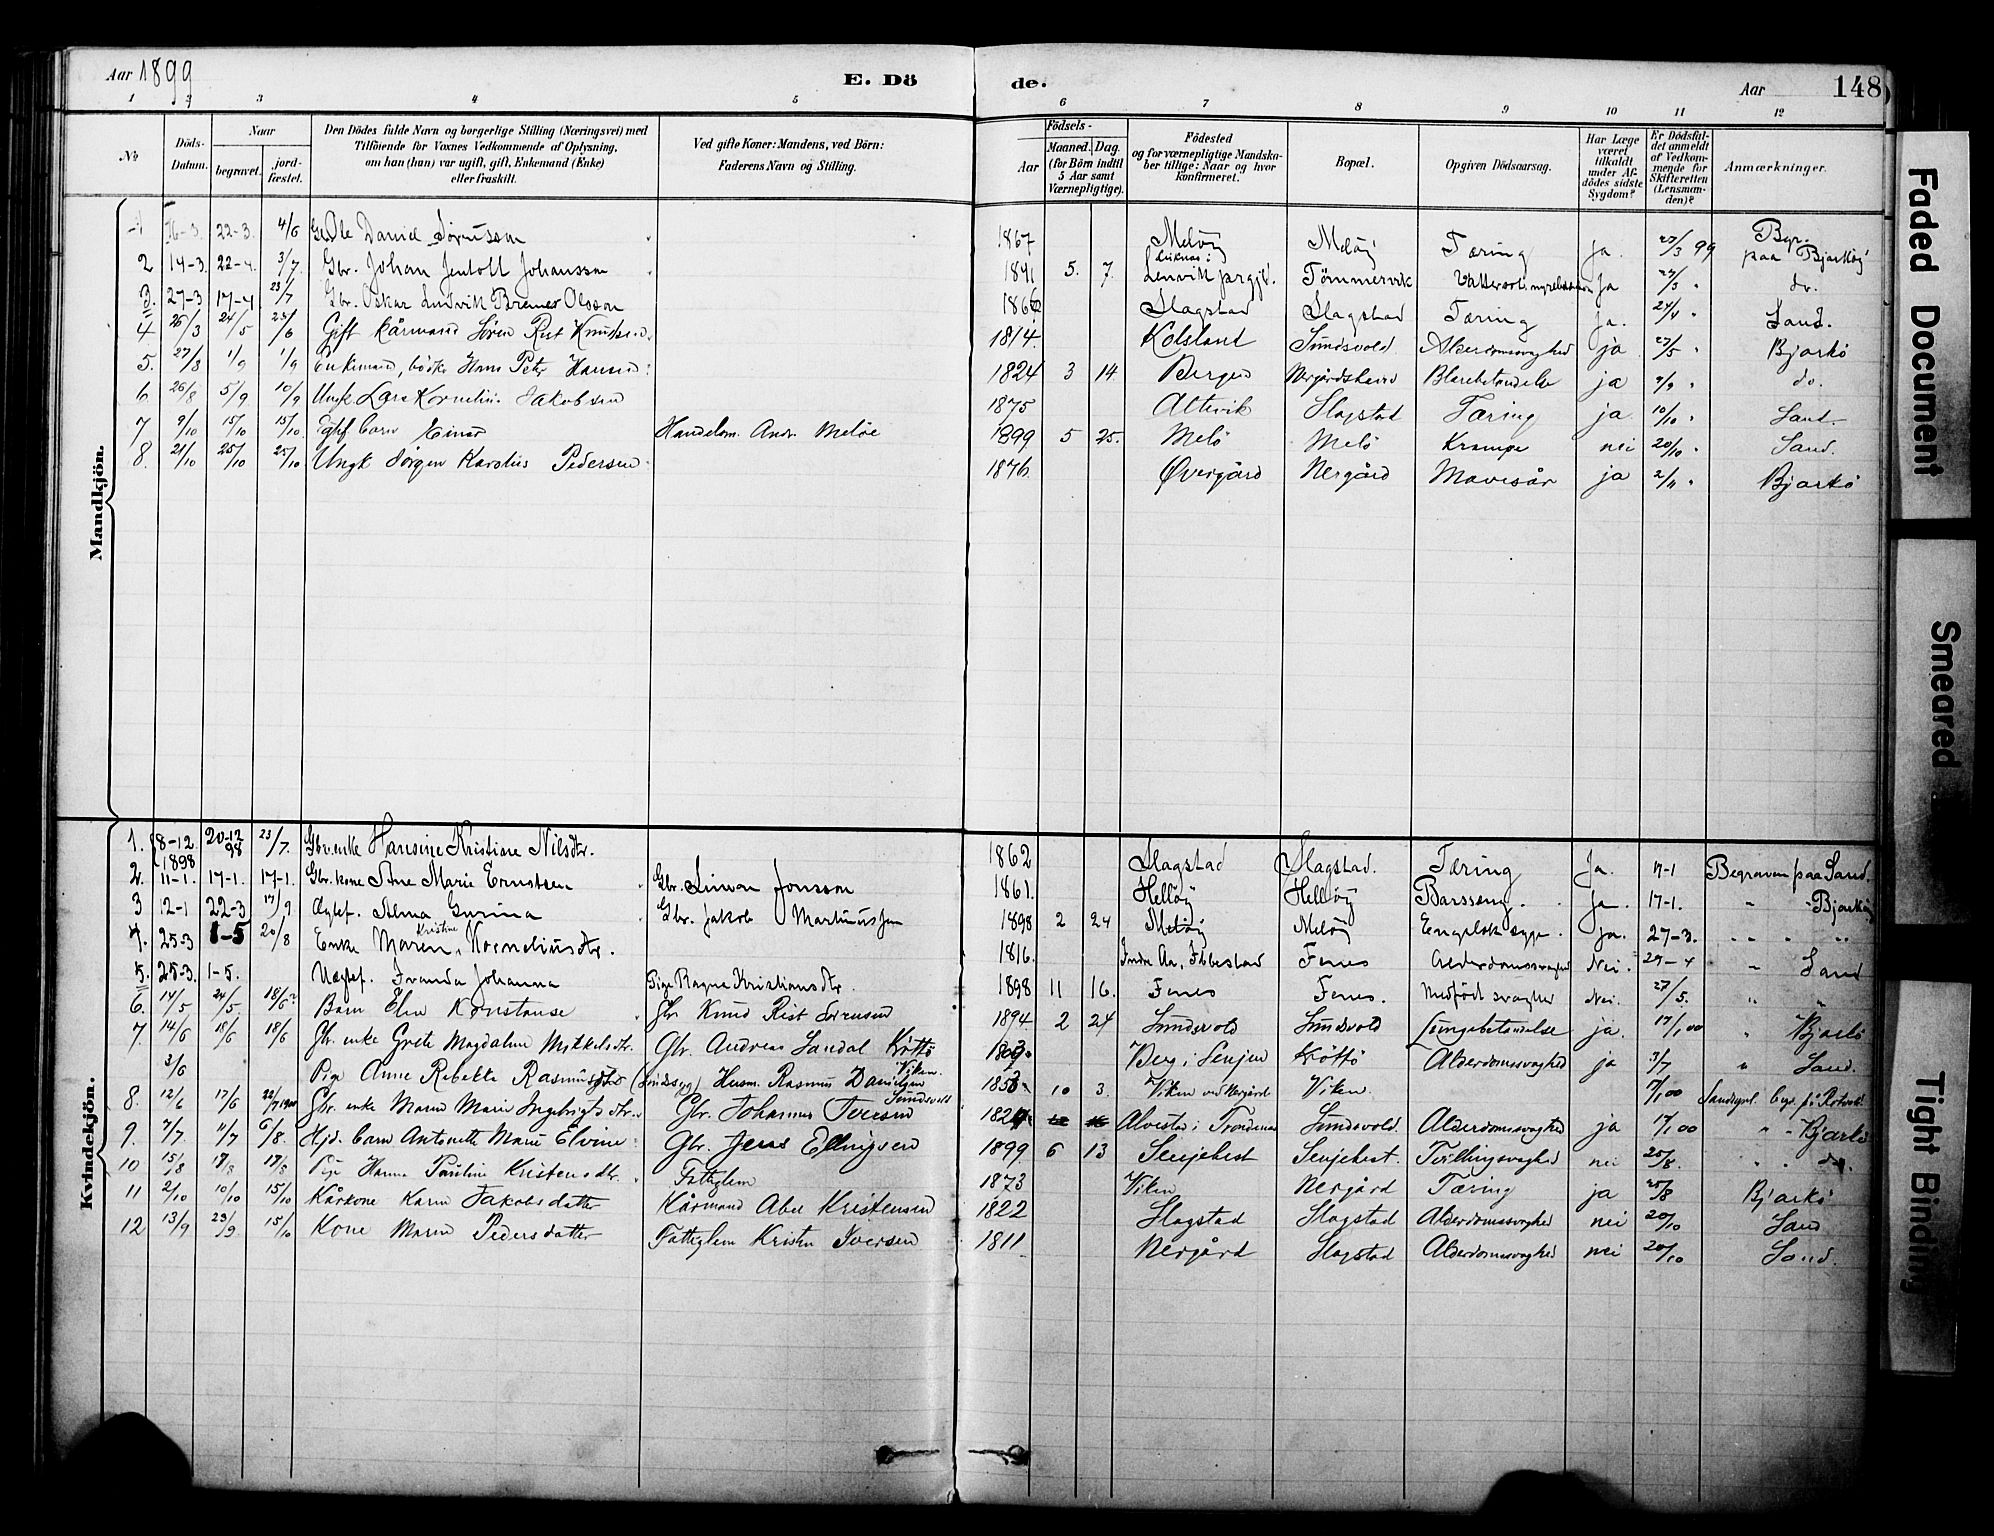 Aar 1899
E. Dö
de.
Aar
148
1 2 3 4 5 6 7 8 9 10 11 12
No
Döds-Datum.
Naar
begravet.
jord-fæstet.
Den Dödes fulde Navn og borgerlige Stilling (Næringsvei) med
Tilföiende for Voxnes Vedkommende af Oplysning,
om han (hun) var ugift, gift, Enkemand (Enke)
eller fraskilt.
Ved gifte Koner: Mandens, ved Börn:
Faderens Navn og Stilling.
Födsels-
Aar
Maaned. Dag.
(for Börn indtil
5 Aar samt
Værnepligtige).
Födested
og for værnepligtige Mandska-
ber tillige: Naar og hvor
konfirmeret.
Bopæl.
Opgiven Dödsaarsag.
Har Læge
været
tilkaldt
under Af-
dödes sidste
Sygdom?
Er Dödsfal-
det anmeldt
af Vedkom-
mende for
Skifteretten
(Lensman-
den)?
Anmærkninger.
Mandkjön.
1 16-3. 22-3. 4/6 Ole Daniel Sørensen 1867 Meløy Meløy Tæring ja. 27/3 99 Begr. paa Bjarkøy
2 14-3. 22-4. 3/7 Gbr. Johan Jentoft Johansson 1841 5. 7. Lenvik prgjld. Tømmervik Ja 27/3 " do.
3. 27-3 17-4 23/7 Gbr. Oskar Ludvik Bremer Olsson 1866 Slagstad Slagstad Tæring ja. 24/4 " Sand.
4 26/3 24/5 23/6 Gift kårmand Søren Rist Knutsen. 1814. Kolsland Sundsvold Alderdomssvaghed ja 27/5 " Bjarkö
5. 27/8 1/9 1/9 Enkemand, Hans Peter Hansen 1824 3 14. Bergen Nergårdshavn Blærebetændelse ja 9/9 " do.
6 26/8 5/9 10/9 Ungk Lars Kornelius Jakobsen 1875 Altevik Slagstad Tæring ja 10/10 " Sand.
7 9/10 15/10 15/10 Egtef barn Einar Handelsm. Andr. Meløe 1899 5 25. Melö Melö Krampe nei 20/10 " Sand.
8. 21/10 25/10 25/10 Ungk Jørgen Karolius Pedersen 1876. Øvergård Nergård Mavesår ja 2/11 " Bjarkö
Kvindekjön.
1. 8-12 1898 20-12 98 23/7. Gbr. enke Hansine Kristiane Nilsdtr. 1862 Slagstad Slagstad. Tæring Ja. 17-1 Begraven paa Sand.
2. 11-1. 17-1. 17-1. Gbr. kone Ane Marie Ernstsen Gbr. Simon Jonsson 1861. Helløy Helløy Barsseng. Ja. 17-1. " " Bjarkøy
3 12-1 22-3 17/9 Ægtef. Alma Gurina Gbr. Jakob Martinussen 1898 2 24 Meløy Meløy Engelsk syge. ja. 27-3. " " "
4. 25-3 1-5 20/8 Enke Maren Kristine Korneliusdtr. 1816. Indre Aa, Ibbestad Fenes Alderdomssvaghed Nei. 29-4 " Sand
5. 25-3. 1-5. Uægtef. Johanna Pige Ragna Kristiansdtr. 1898 11 16. Fenes Fenes. Medfödt svaghet Nei. 27/5. " "
6. 14/5 24/5. 18/6? Barn Elen Konstanse Gbr. Knud Rist Sørensen 1894 2 24 Sundsvold Sundsvold Lungebetændelse ja. 17/1 00 " Bjarkö
7. 14/6 18/6 18/6 Gbr. enke Grete Magdalene Mikkelsdtr. Gbr. Andreas Sandal Krøttö Berg i Senjen Krøttö Alderdomssvaghed ja 3/7 " Sand.
3/6 Pige Anne Rebekka Rasmusdtr (Sindssyg) Husm. Rasmus Danielsen Viken. 1853 10 3. Viken ved Nergård Viken. 7/1 00
8. 12/6 17/6 22/7 1900 Gbr. enke Maren Marie Ingebrigtsdtr. Gbr. Johannes Iversen Sundsvold 1824 Alvestad i Trondenes Sundsvold. Alderdomssvaghed ja 17/1 00 " " Bjarkö
9. 7/7 11/7 6/8. Hjd. barn Antonette Marie Elvine Gbr. Jens Ellingsen 1899 6 13 Senjehest Senjehest. Tvillingsvaghed nei 25/8. " " do.
10 15/8 17/8 17/8 Pige Hanna Pauline Kristensdtr. Fattiglem 1873 Viken Nergård Tæring ja 25/8 Bjarkö
11 2/10 10/10 15/10 Kårkone Karen Jakobsdatter Kårmand Abel Kristensen 1822 Slagstad Slagstad Alderdomssvaghed nei 20/10 Sand
12 13/9 23/9 15/10 Kone Maren Pedersdatter Fattiglem Kristen Iversen 1811 Nergård Slagstad Alderdomssvaghed nei 20/10 Sand.
Faded Document
Smeared
Tight Binding